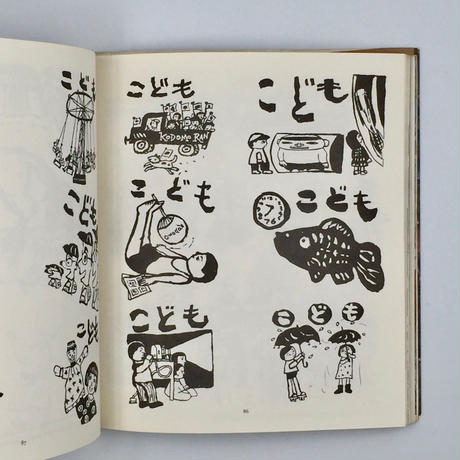 こども
こども
こども
KODOMO RAN
こども
こども
こども
こども
こども
こども
86